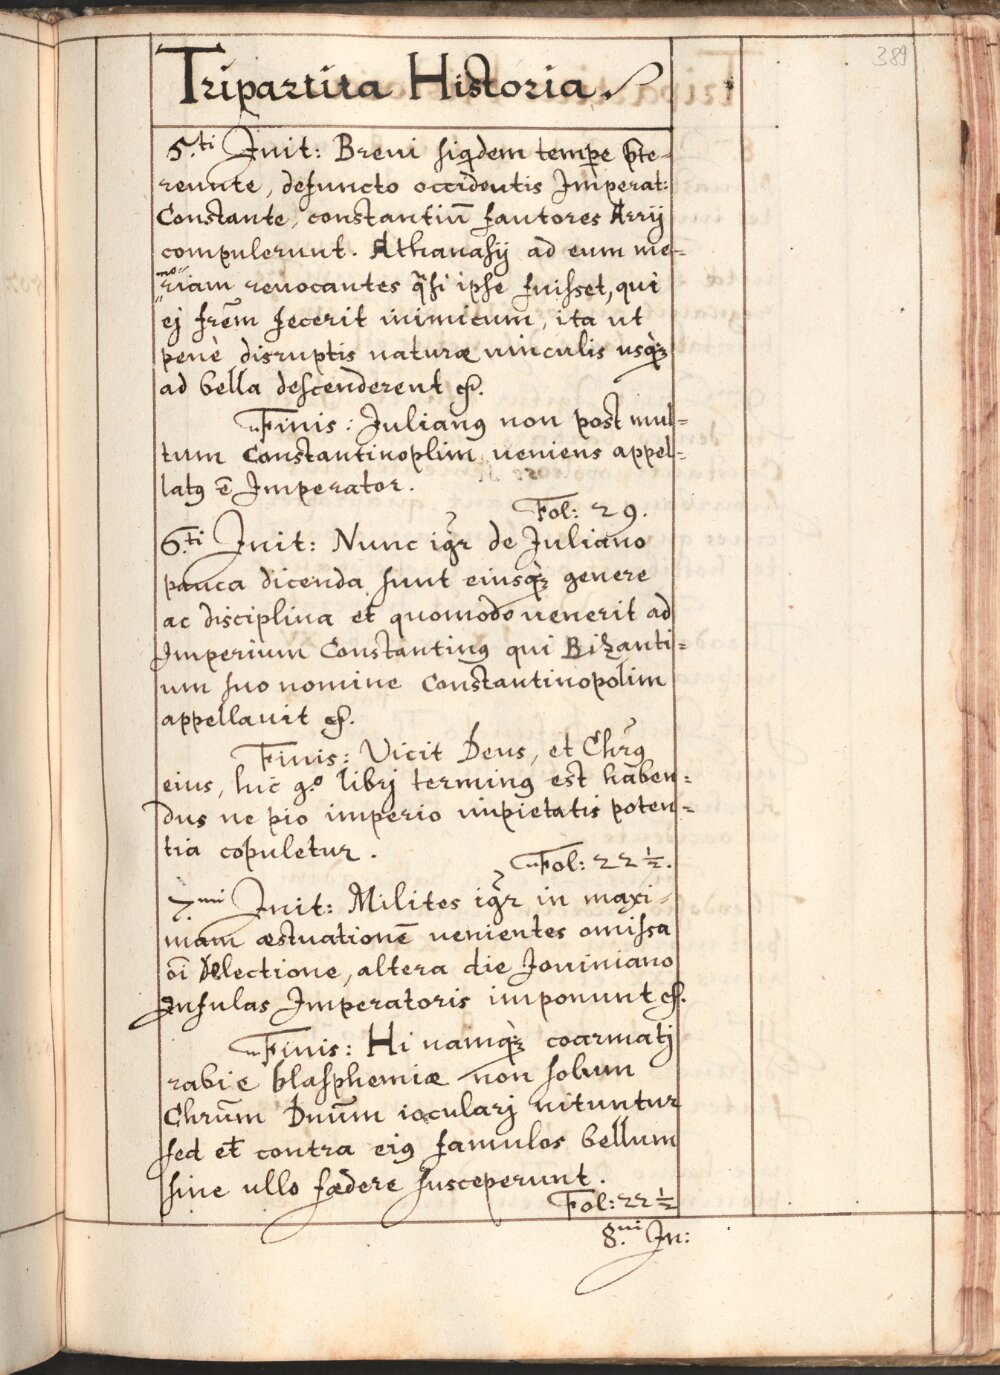 389
Tripartita Historia.
5.ti Init: Breui siq̃dem tempe p̃te-
reunte, defuncto occidentis Imperat:
Constante, constantiũ fautores Arrij
compulerunt. Athanasij ad eum me-
moriam reuocantes q̃si ipse fuisset, qui
ej frẽm fecerit inimicum, ita ut
penè disruptis naturæ uinculis usq̨
ad bella descenderent &.
Finis: Julianꝰ non post mul-
tum Constantinoplim ueniens appel-
latꝰ ẽ Imperator.
Fol: 29.
6.ti Init: Nunc igr̃ de Juliano
pauca dicenda sunt eiusq̨ genere
ac disciplina et quomodo uenerit ad
Imperium Constantinꝰ qui Bizanti-
um suo nomine Constantinopolim
appellauit &.
Finis: Vicit Deus, et Chr̃ꝰ
eius, hic g.o librj terminꝰ est haben-
dus ne pio imperio impietatis poten-
tia copuletur.
Fol: 22 ½.
7.mi Init: Milites igr̃ in maxi-
mam æstuationẽ uenientes omissa
oĩ delectione, altera die Jouiniano
Insulas Imperatoris imponunt &.
Finis: Hi namq̨ coarmatj
rabie blasphemiæ non solum
Chrũm Dnũm iocularj nituntur
sed et̃ contra eiꝰ famulos bellum
sine ullo fædere susceperunt.
Fol: 22 ½
8.ui In: